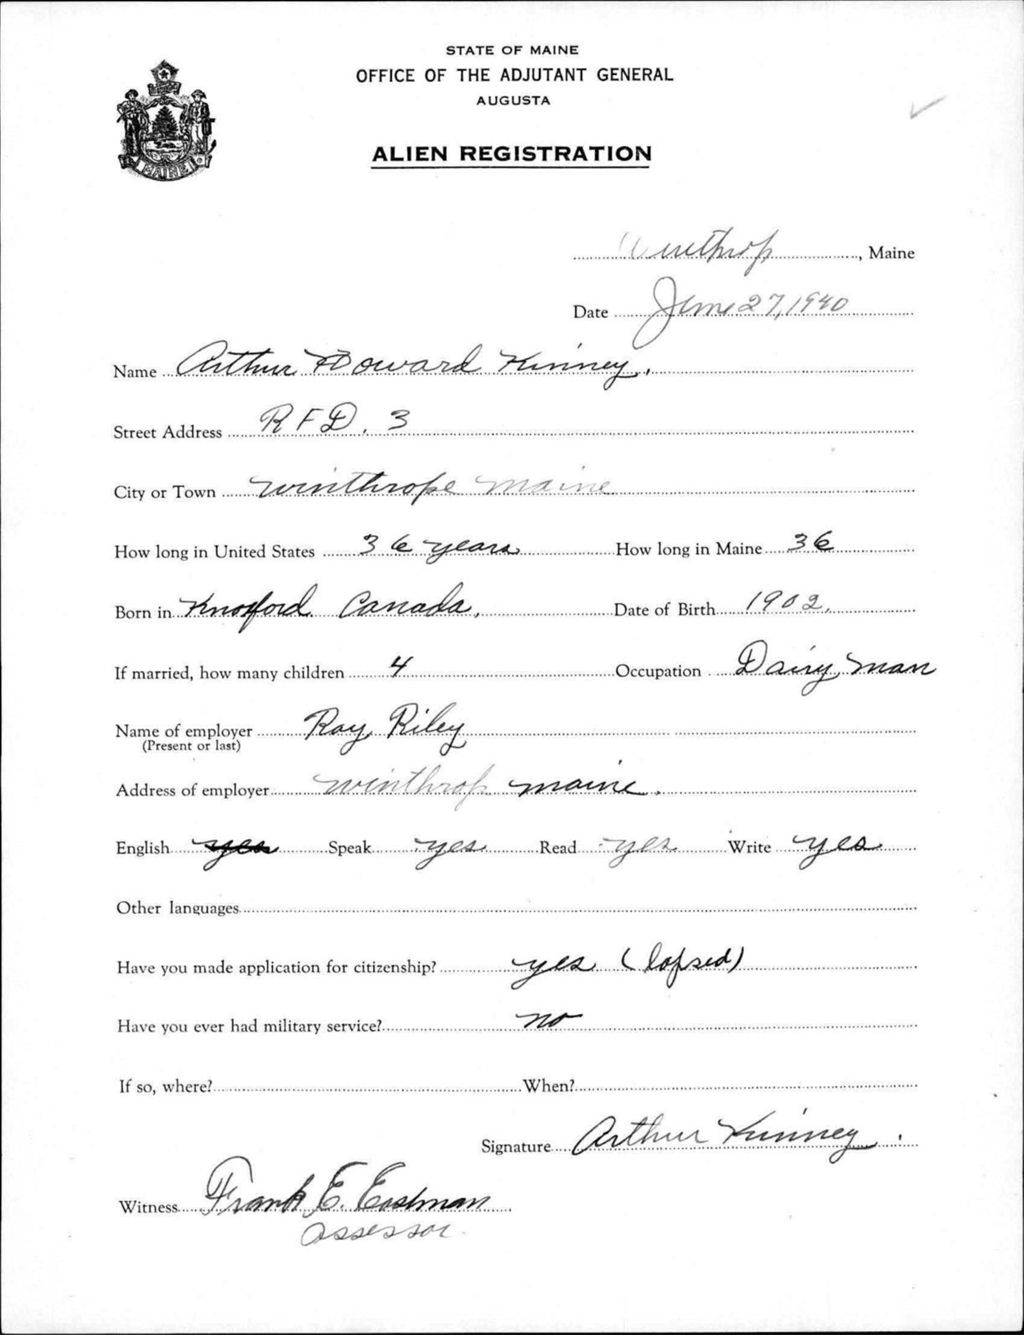 STATE OF MAINE
OFFICE OF THE ADJUTANT GENERAL
AUGUSTA
ALIEN REGISTRATION
MAINE
Winthrop, Maine
Date June 27, 1940
Name Arthur Howard Kinney.
Street Address RFD. 3
City or Town Winthrope Maine
How long in United States 36 years How long in Maine 36
Born in Knoxford Canada. Date of Birth 1902.
If married, how many children 4 Occupation Dairy man
Name of employer Ray Riley
(Present or last)
Address of employer Winthrop maine.
English yes Speak yes Read yes Write yes
Other languages
Have you made application for citizenship? yes (lapsed)
Have you ever had military service? no
If so, where? When?
Signature Arthur Kinney.
Witness Frank E. Eastman
Assessor